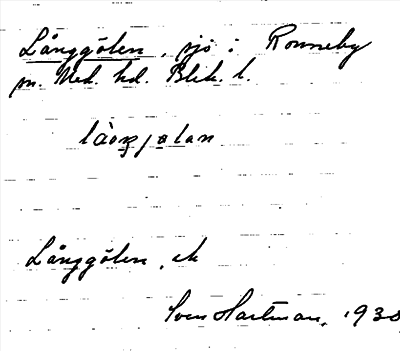 Långgölen, sjö i Ronneby
sn. Med. hd. Blek. l.
Långgölen, ek
Sven Hartman, 193